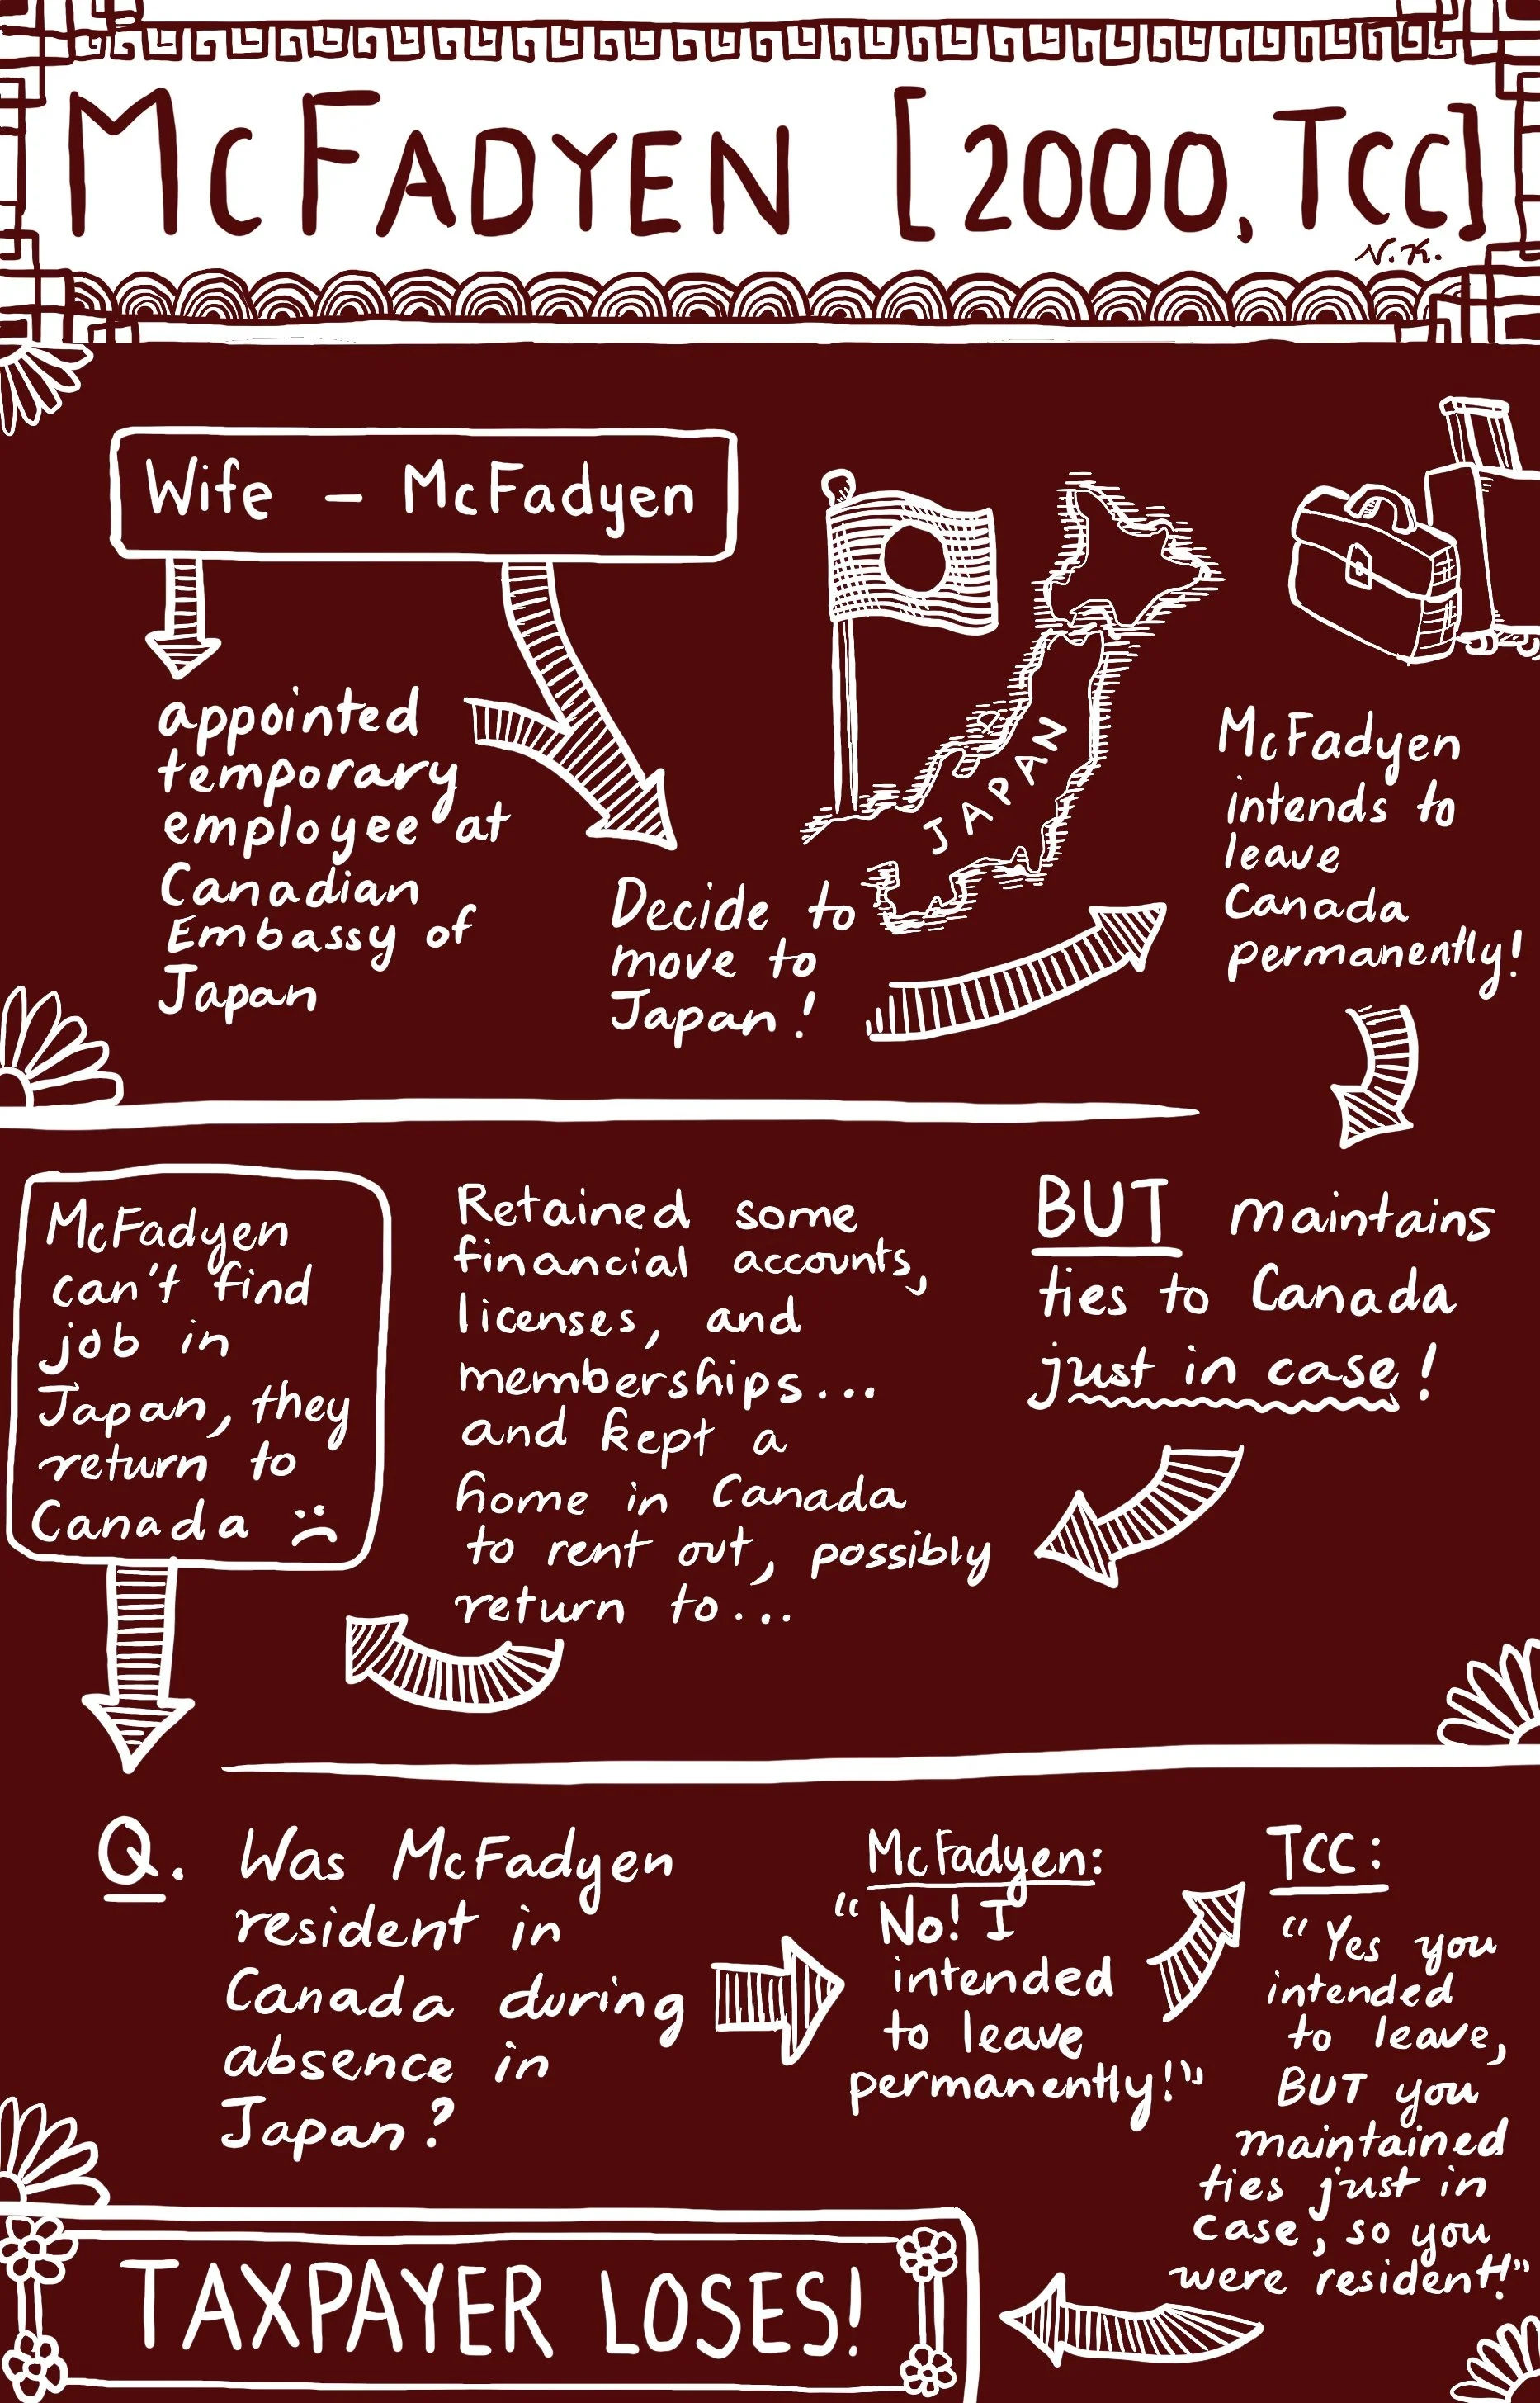 McFADYEN [2000, TCC]
N.K.
Wife – McFadyen
appointed
temporary
employee at
Canadian
Embassy of
Japan
Decide to
move to
Japan!
JAPAN
McFadyen
intends to
leave
Canada
permanently!
BUT maintains
ties to Canada
just in case!
Retained some
financial accounts,
licenses, and
memberships...
and kept a
home in Canada
to rent out, possibly
return to...
McFadyen
can't find
job in
Japan, they
return to
Canada :(
Q. Was McFadyen
resident in
Canada during
absence in
Japan?
McFadyen:
"No! I
intended
to leave
permanently!"
TCC:
"Yes you
intended
to leave,
BUT you
maintained
ties just in
case, so you
were resident!"
TAXPAYER LOSES!